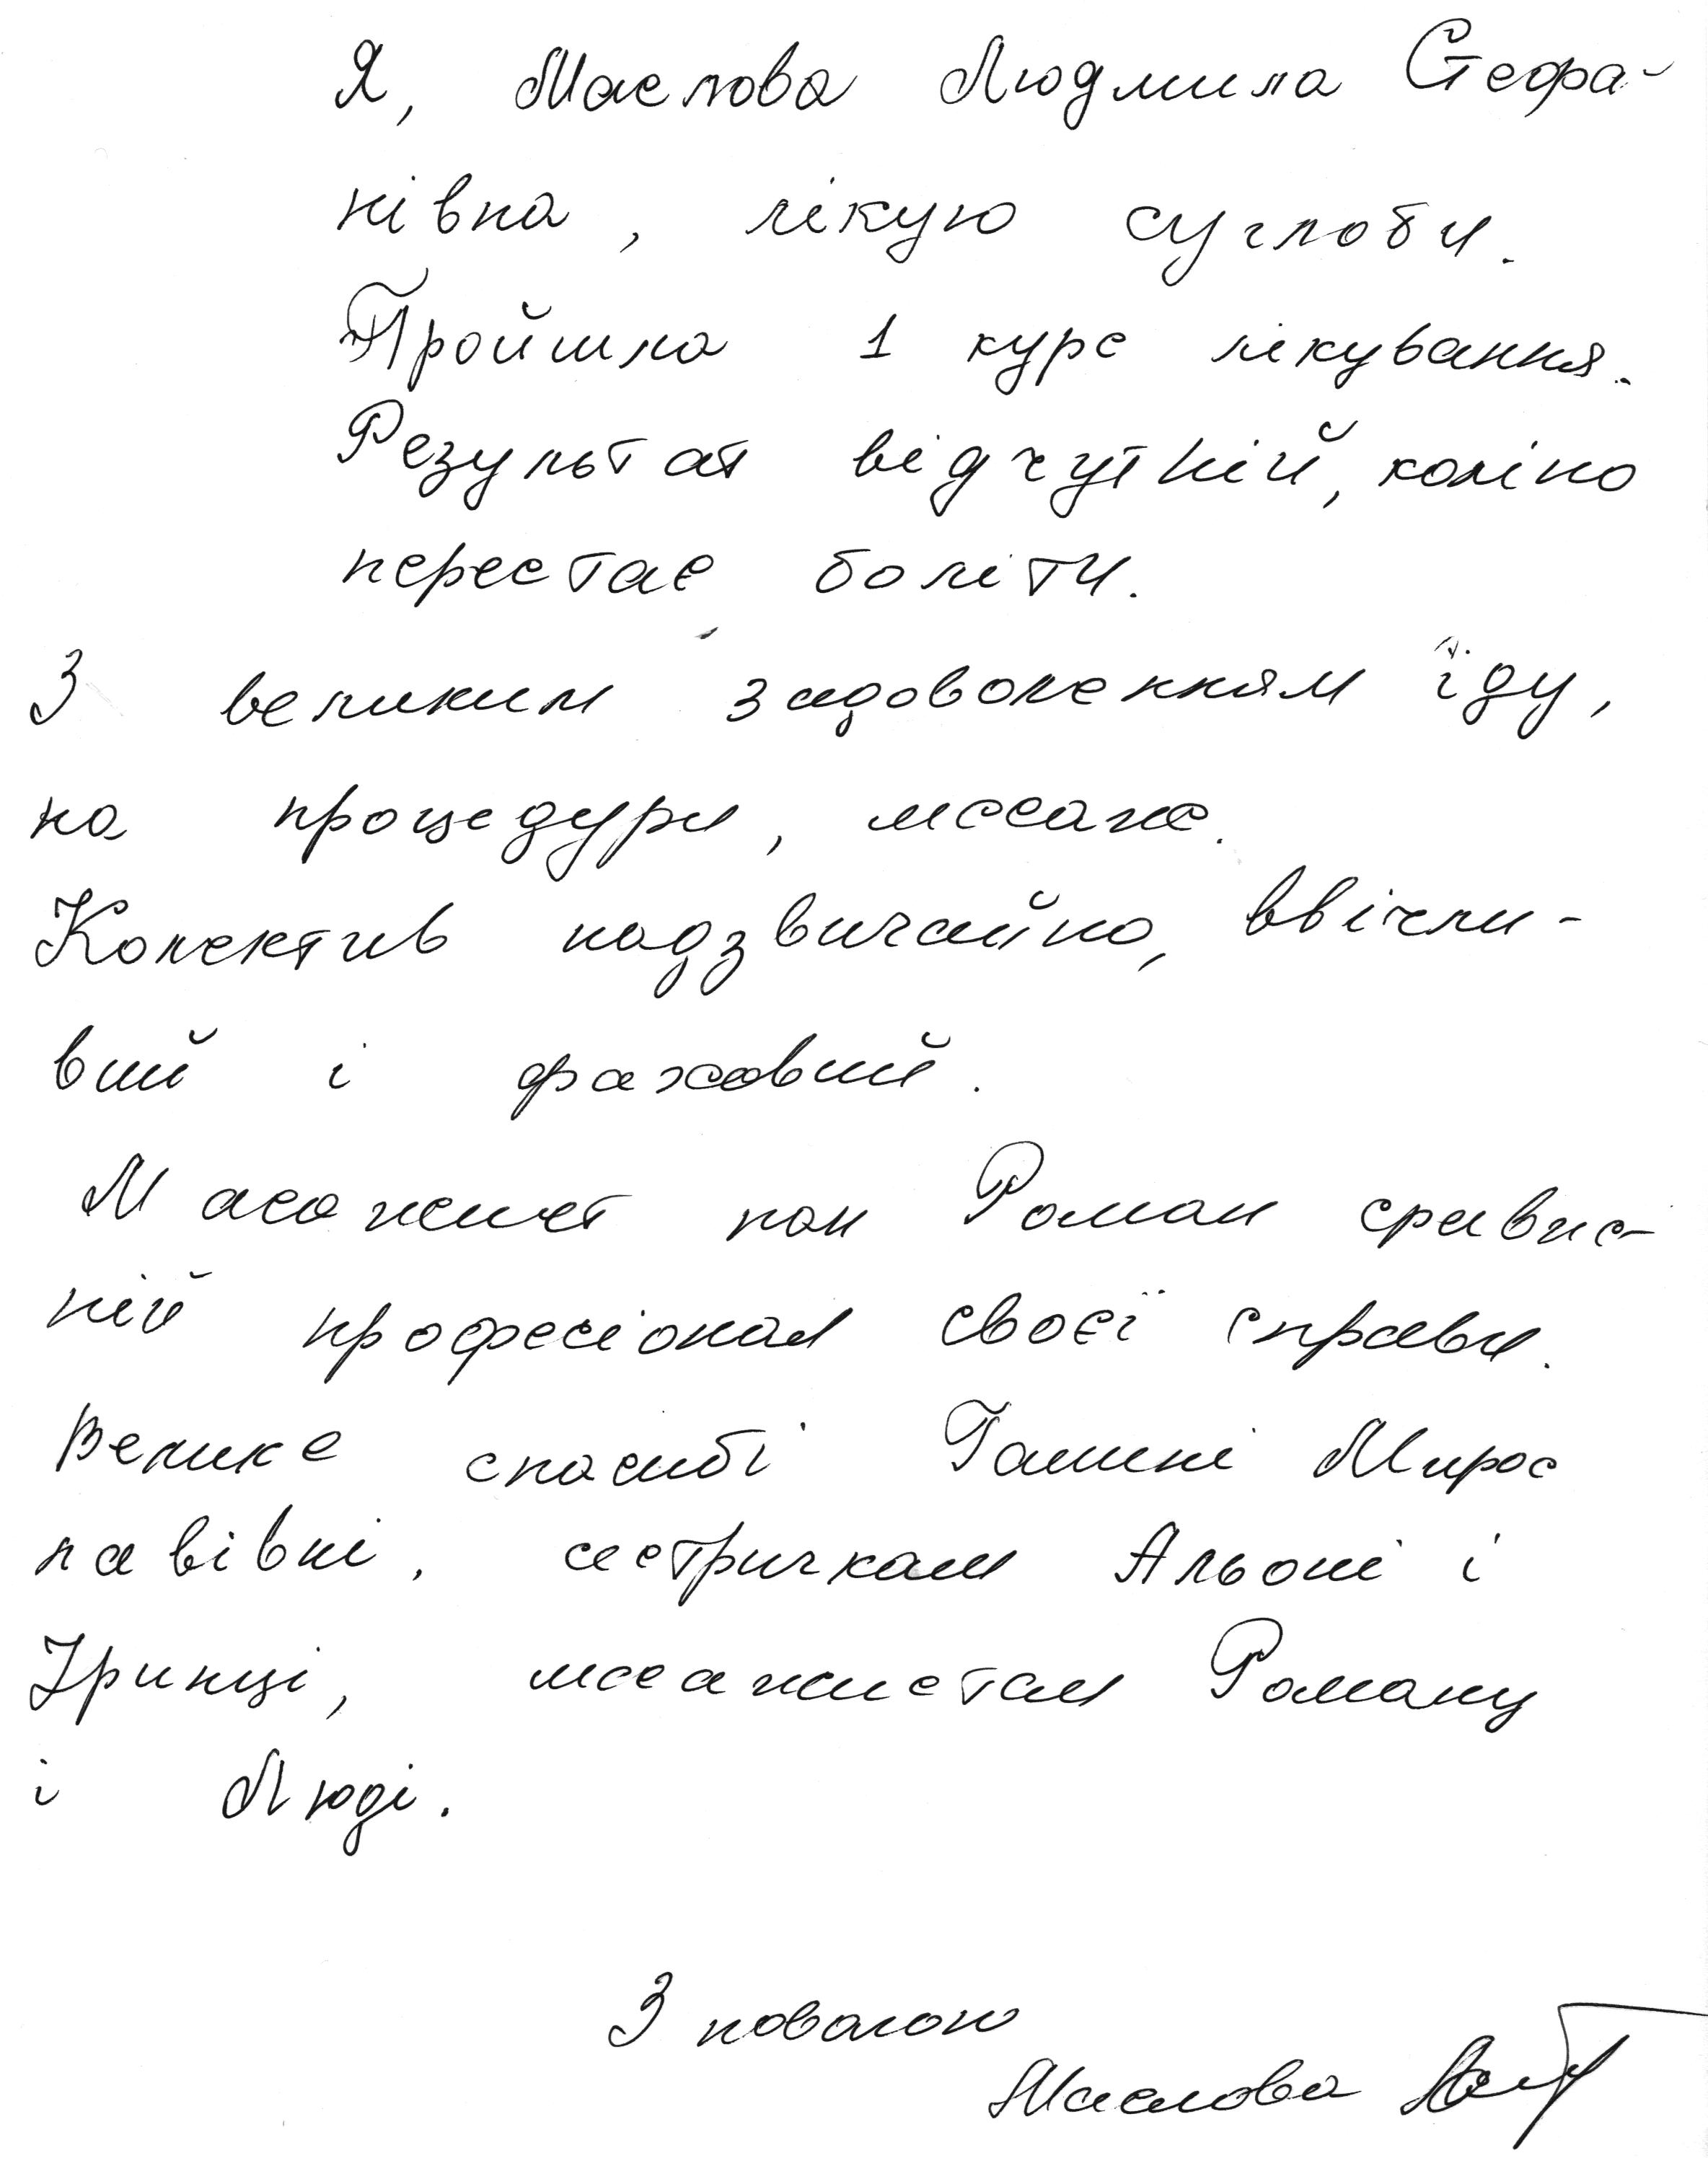 Я, Маслова Людмила Стефа-
нівна, лікую суглоби.
Пройшла 1 курс лікування.
Результат відчутній, коліно
перестає боліти.
З великим задоволенням їду,
на процедури, масаж.
Колектив надзвичайно, ввічли-
вий і фаховий.
Масажист пан Роман справж-
ній професіонал своєї справи.
Велике спасибі Галині Мирос
лавівні, сестричкам Альоні і
Іринці, масажистам Роману
і Люді.
З повагою
Маслова